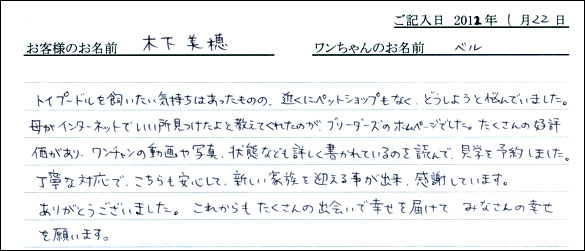 ご記入日 2012年 1月22日
お客様のお名前 木下 美穂 ワンちゃんのお名前 ベル
トイプードルを飼いたい気持ちはあったものの、近くにペットショップもなく、どうしようと悩んでいました。
母がインターネットでいい所見つけたよと教えてくれたのが、ブリーダーズのホームページでした。たくさんの好評
価があり、ワンチャンの動画や写真、状態なども詳しく書かれているのを読んで、見学を予約しました。
丁寧な対応で、こちらも安心して、新しい家族を迎える事が出来、感謝しています。
ありがとうございました。これからもたくさんの出会いで幸せを届けて みなさんの幸せ
を願います。